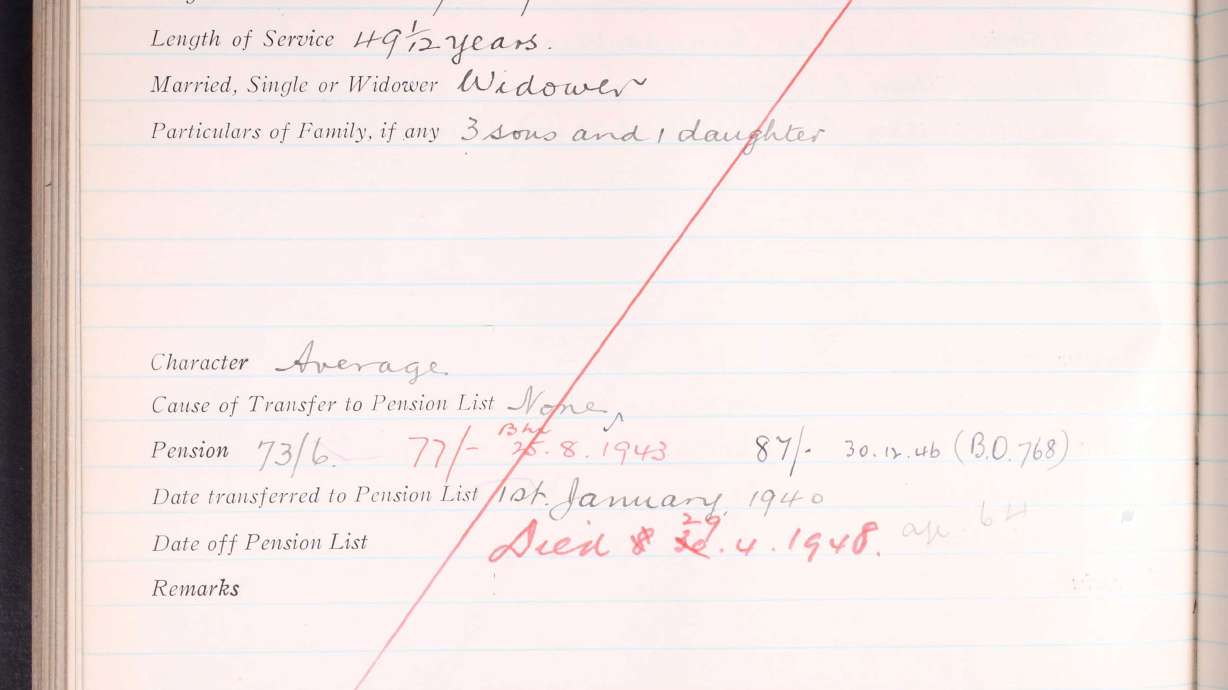 Length of Service 49 1/12 years.
Married, Single or Widower Widower
Particulars of Family, if any 3 sons and 1 daughter
Character Average.
Cause of Transfer to Pension List None
Pension 73/6. 77/- 25.8.1943 87/- 30.12.46 (B.O. 768)
Date transferred to Pension List 1st. January, 1940
29
Date off Pension List Died 30.4.1948. age 64
Remarks